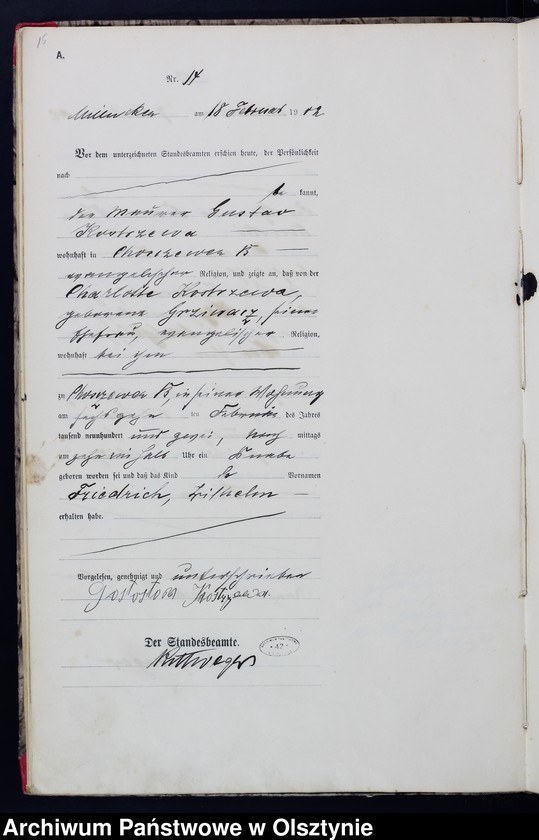 15
A.
Nr. 14
am 18 Februar 1902
Vor dem unterzeichneten Standesbeamten erschien heute, der Persönlichkeit
nach
be kannt,
der Maurer Gustav
Kostrzewa
wohnhaft in Choszewen B
evangelischer Religion, und zeigte an, daß von der
Charlotte Kostrzewa,
geborene Grziwacz, seiner
Ehefrau, evangelischer Religion,
wohnhaft bei ihm
zu Choszewen B, in seiner Wohnung
am sechszehn ten Februar des Jahres
tausend neunhundert und zwei, Nach mittags
um zehn ein halb Uhr ein Knabe
geboren worden sei und daß das Kind die Vornamen
Friedrich, Wilhelm
erhalten habe.
Vorgelesen, genehmigt und unterschrieben
Kostrzewa.
Der Standesbeamte.
* 47 *
Archiwum Państwowe w Olsztynie